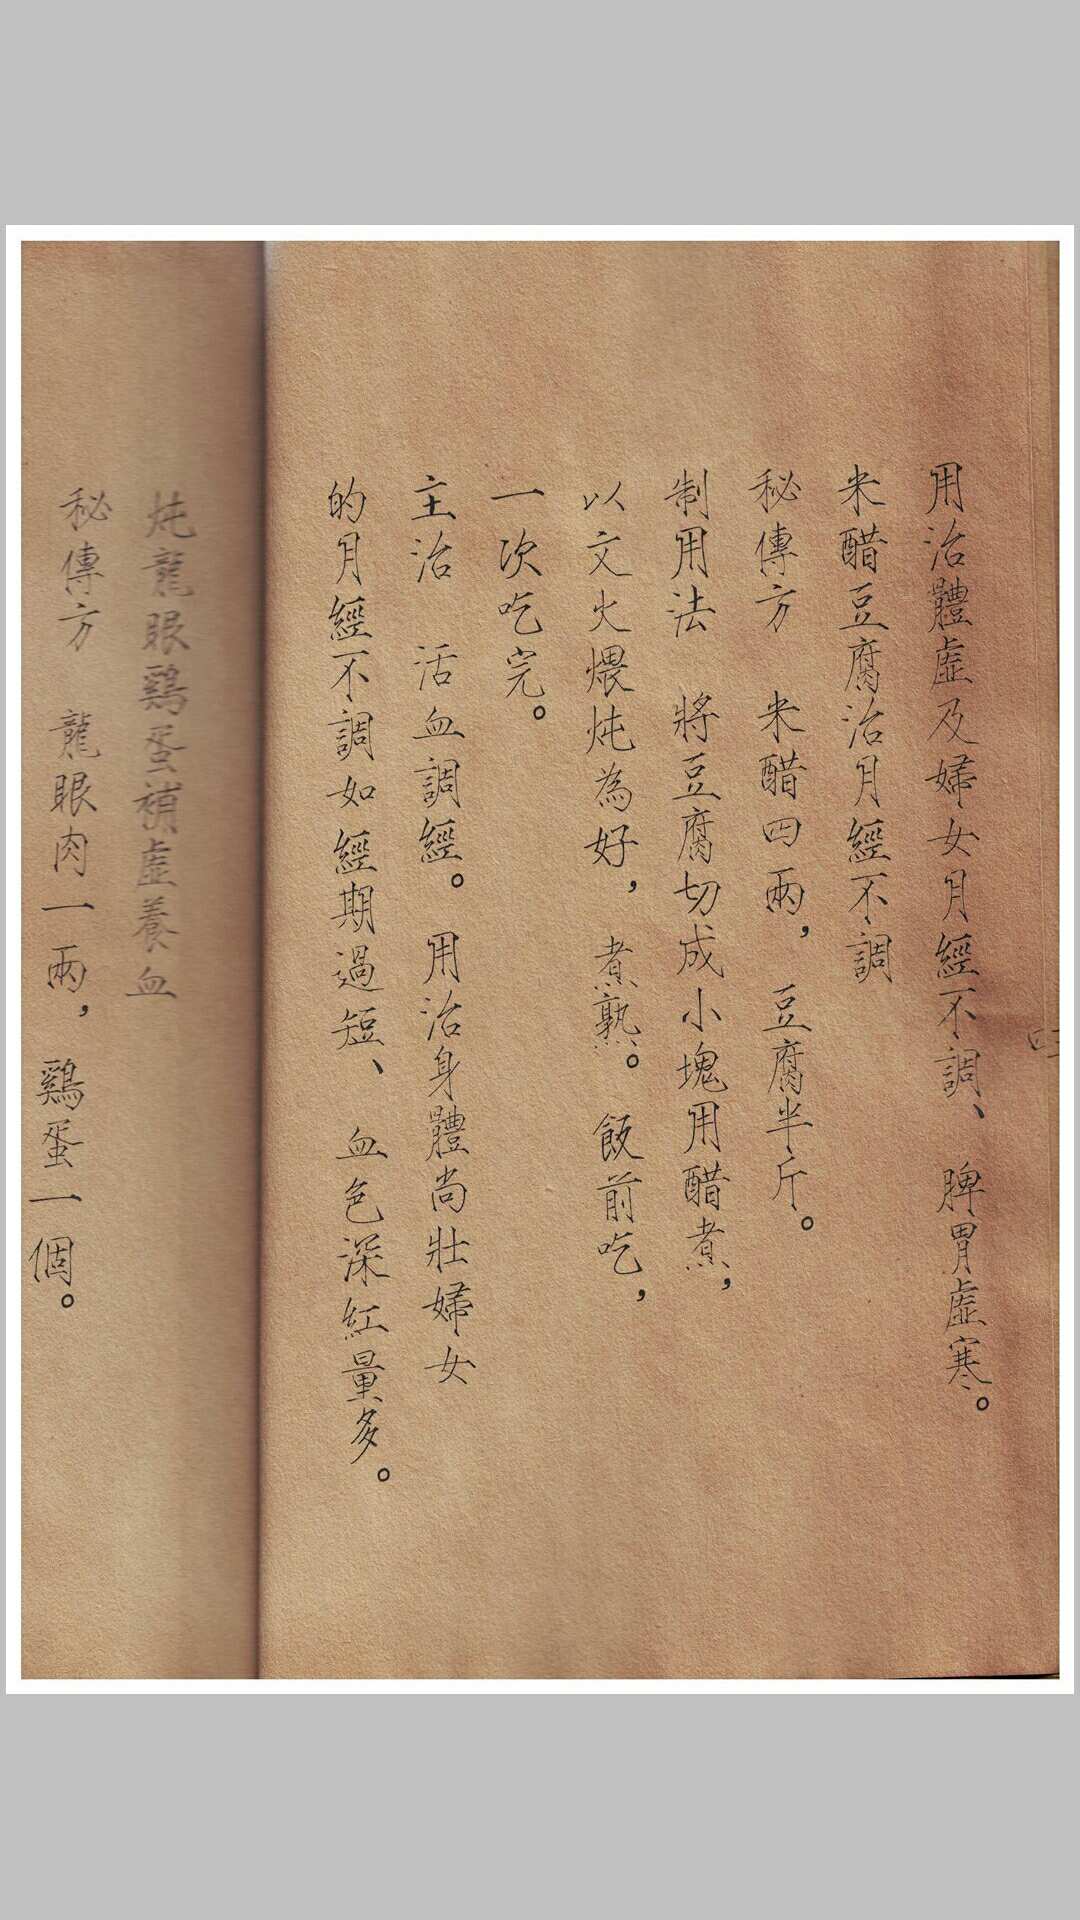 用治體虛及婦女月經不調、脾胃虛寒。
米醋豆腐治月經不調
秘傳方　米醋四兩，豆腐半斤。
制用法　將豆腐切成小塊用醋煮，
以文火煨炖為好，煮熟。飯前吃，
一次吃完。
主治　活血調經。用治身體尚壯婦女
的月經不調如經期過短、血色深紅量多。
炖龍眼鷄蛋補虛養血
秘傳方　龍眼肉一兩，鷄蛋一個。